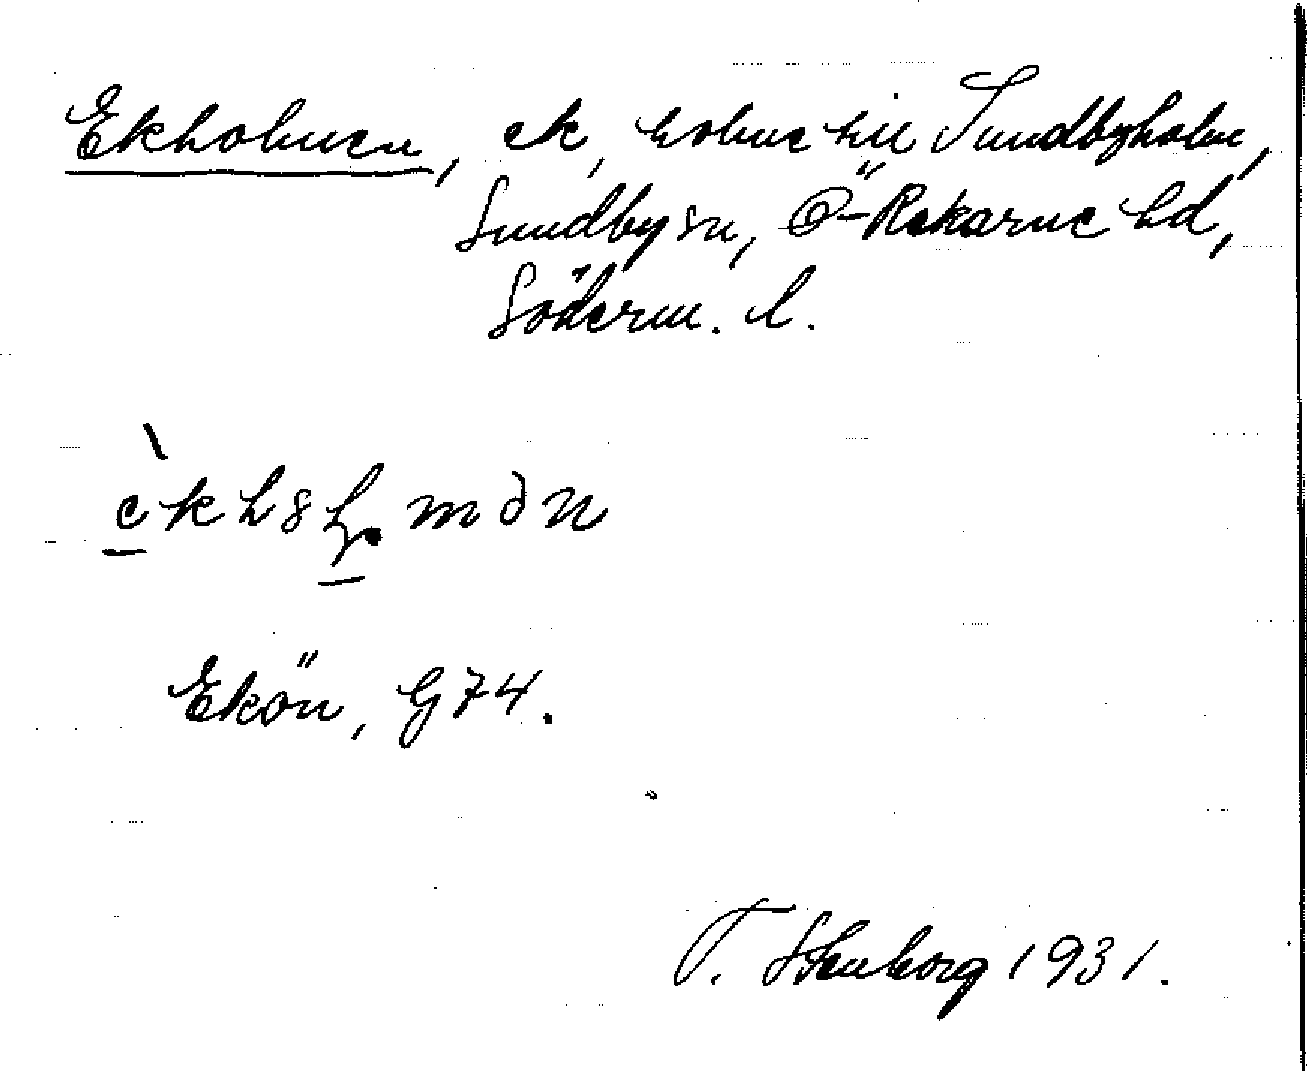 Ekholmen, ek, holme till Sundbyholm,
Sundby sn, Ö-Rekarne hd,
Söderm. l.
Ekön, G74.
T. Stenborg 1931.